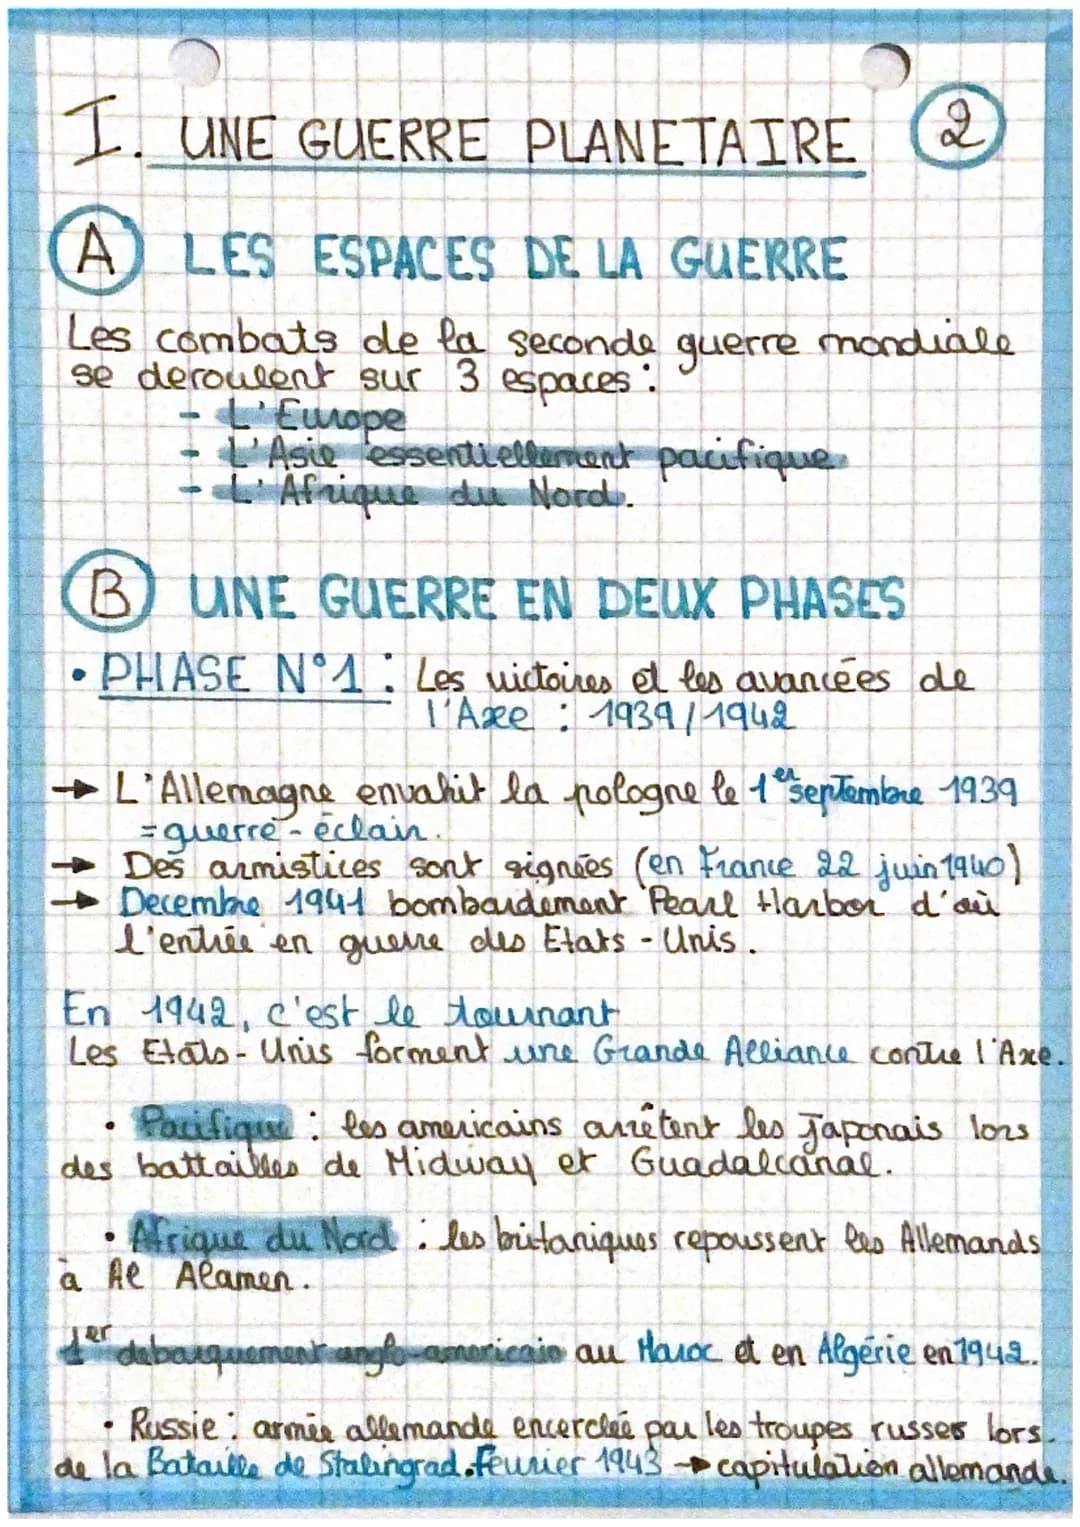 I. UNE GUERRE PLANETAIRE 2
A LES ESPACES DE LA GUERRE
Les combats de la seconde guerre mondiale
se deroulent sur 3 espaces :
- L'Europe
- L'Asie essentiellement pacifique
- L'Afrique du Nord.
B UNE GUERRE EN DEUX PHASES
• PHASE N°1 : Les victoires et les avancées de
l'Axe : 1939/1942
→ L'Allemagne envahit la pologne le 1er septembre 1939
= guerre-éclair.
→ Des armistices sont signées (en France 22 juin 1940)
→ Decembre 1941 bombardement Pearl Harbor d'où
l'entrée en guerre des Etats-Unis.
En 1942, c'est le tournant
Les Etats-Unis forment une Grande Alliance contre l'Axe.
• Pacifique : les americains arrêtent les Japonais lors
des battailles de Midway et Guadalcanal.
• Afrique du Nord : les britaniques repoussent les Allemands
à Al Alamen.
1er debarquement anglo-americain au Maroc et en Algérie en 1942.
• Russie : armée allemande encerclée par les troupes russes lors
de la Bataille de Stalingrad. Feurier 1943 → capitulation allemande.